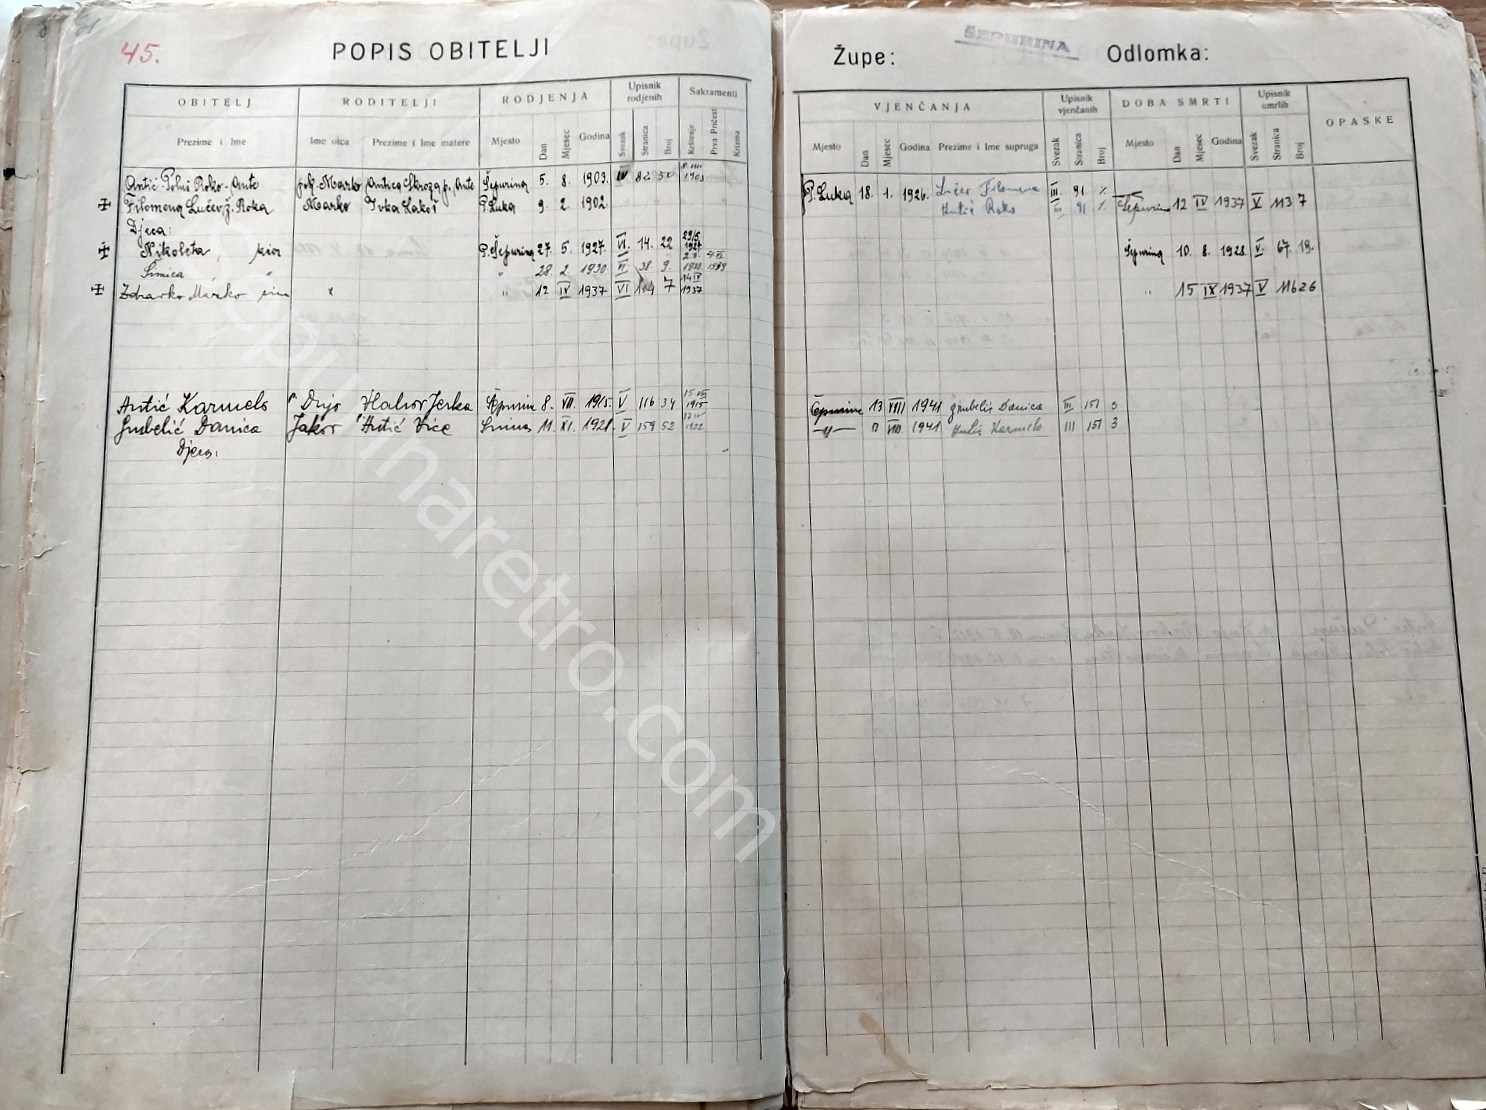 45. POPIS OBITELJI
ŠEPURINA
Župe: Odlomka:
OBITELJ RODITELJI RODJENJA Upisnik rodjenih Sakramenti
Prezime i Ime Ime otca Prezime i Ime matere Mjesto Dan Mjesec Godina Svezak Stranica Broj Krštenje Prva Pričest Krizma
VJENČANJA Upisnik vjenčanih DOBA SMRTI Upisnik umrlih OPASKE
Mjesto Dan Mjesec Godina Prezime i Ime supruga Svezak Stranica Broj Mjesto Dan Mjesec Godina Svezak Stranica Broj
Antić Polni Roko-Ante pok. Marko Antica Skroza p. Ante Šepurina 5. 8. 1903. IV 82 50 1903
P. Luka 18. 1. 1926. Lučev Filomena III 91 1/2
Filomena Lučev, ž. Roka Marko Ivka Lakoš P. Luka 9. 2. 1902.
Antić Roko III 91 Šepurina 12 IV 1937 V 113 7
Djeca:
Nikoleta, kćer P. Šepurina 27. 5. 1927 VI. 14. 22 1927
Šepurina 10. 8. 1928. V. 67. 19.
Šimica " " 28. 2. 1930 VI 38. 9. 1939
Zdravko Marko sin " 12 IV 1937 VI 114 7 14 IV 1937
" 15 IX 1937 V 116 26
Antić Karmelo Dujo Jerka Šepurina 8. VII. 1915. V 116 34 1915
Šepurina 13 VIII 1941 Grubelić Danica III 151 3
Grubelić Danica Jakov Antić Vice 11. XI. 1921. V 159 52
VIII. 1941. Antić Karmelo III 151 3
Djeca:
sepurinaretro.com